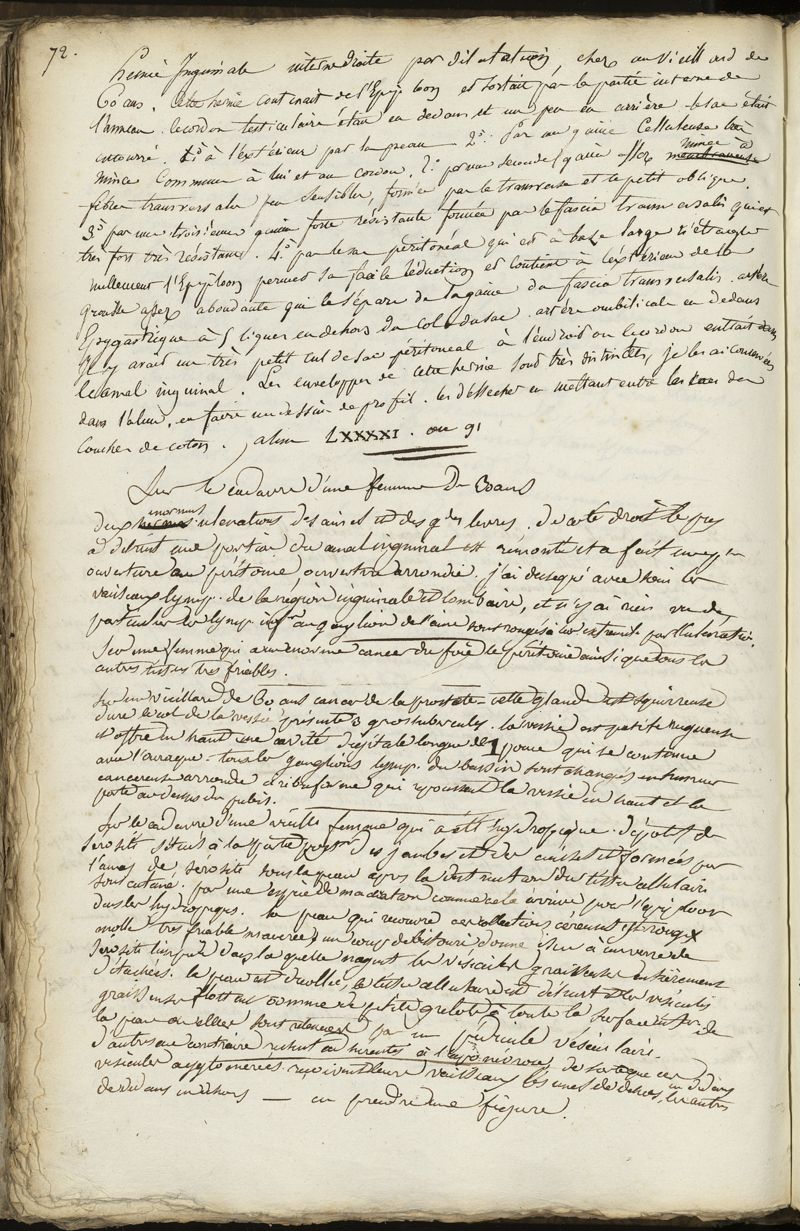 72.
hernie Inguinale interne droite par dilatation, chez un vieillard de
60 ans. cette hernie contenait de l'Epiploon et sortait par la partie interne de
l'anneau. le cordon testiculaire était en dedans et un peu en arrière. le sac était
entouré. 1° à l'extérieur par la peau 2° par une gaine Celluleuse très
mince Commune à lui et au cordon. 2° par une seconde gaine assez mince à
fibres transversales peu sensibles, formée par le transverse et le petit oblique.
3° par une troisième gaine forte résistante formée par le fascia transversalis qui est
très fort très résistant. 4° par le sac péritonéal qui est à base large n'étrangle
nullement l'Epiploon permet sa facile réduction et contient à l'extérieur de la
graisse assez abondante qui le sépare de la gaine du fascia transversalis. artère
Epygastrique à 5 lignes en dehors du col du sac. artère ombilicale en dedans
Il y avait un très petit cul de sac péritonéal à l'endroit ou le cordon entrait dans
le canal inguinal. Les enveloppes de cette hernie sont très distinctes, je les ai conservées
dans l'alun, en faire un dessin de profil. les dessecher en mettant entre les unes des
couches de coton. alun LXXXXI. ou 91
Sur le cadavre d'une femme de 30 ans
deux énormes ulcérations des aines et des gdes levres. du coté droit le pus
a détruit une portion du canal inguinal est remonté et a fait une
ouverture au péritoine, ouverture arrondie. j'ai disséqué avec soin les
vaisseaux lymp. de la région inguinale et lombaire, et n'y ai rien vu de
particulier les lymp. au ganglion de l'aine sont rougis à leur extrémité par l'ulcération.
Sur une femme qui a un énorme cancer du foie le péritoine ainsi que tous les
autres tissus très friables.
Sur un vieillard de 60 ans cancer de la prostate - cette glande est squirreuse
dure le col de la vessie présente 3 gros tubercules. la vessie est petite rugueuse
et offre en haut une cavité digitale longue de 1 pouce qui se continue
avec l'ouraque - tous les ganglions lymp. du bassin sont changés en tumeur
cancereuse arrondie qui repoussent la vessie en haut et la
porte au dessus du pubis.
Sur le cadavre d'une vieille femme qui a été hydropique. dépots de
sérosité situés à la partie des jambes et des cuisses et formées par
l'amas de sérosité sous la peau après la destruction du tissu cellulaire
sous cutané. par une espèce de macération comme cela arrive pour l'épiploon
dans les hydropiques. la peau qui recouvre ces collections séreuses est rouge
molle très friable macérée, un coup de bistouri donne issue à un verre de
sérosité limpide dans laquelle nagent les vésicules graisseuses entièrement
détachées. la peau est décollée, le tissu cellulaire est détruit et les vésicules
graisseuses flottent comme de petits grelots à toute la surface interne de
la peau ou elles sont retenues par un pédicule vésiculaire.
d'autres au contraire restent adhérentes à l'aponévrose de sorte que ces
vésicules agglomérées reçoivent leurs vaisseaux les unes de dehors en dedans les autres
de dedans en dehors — en prendre une figure.